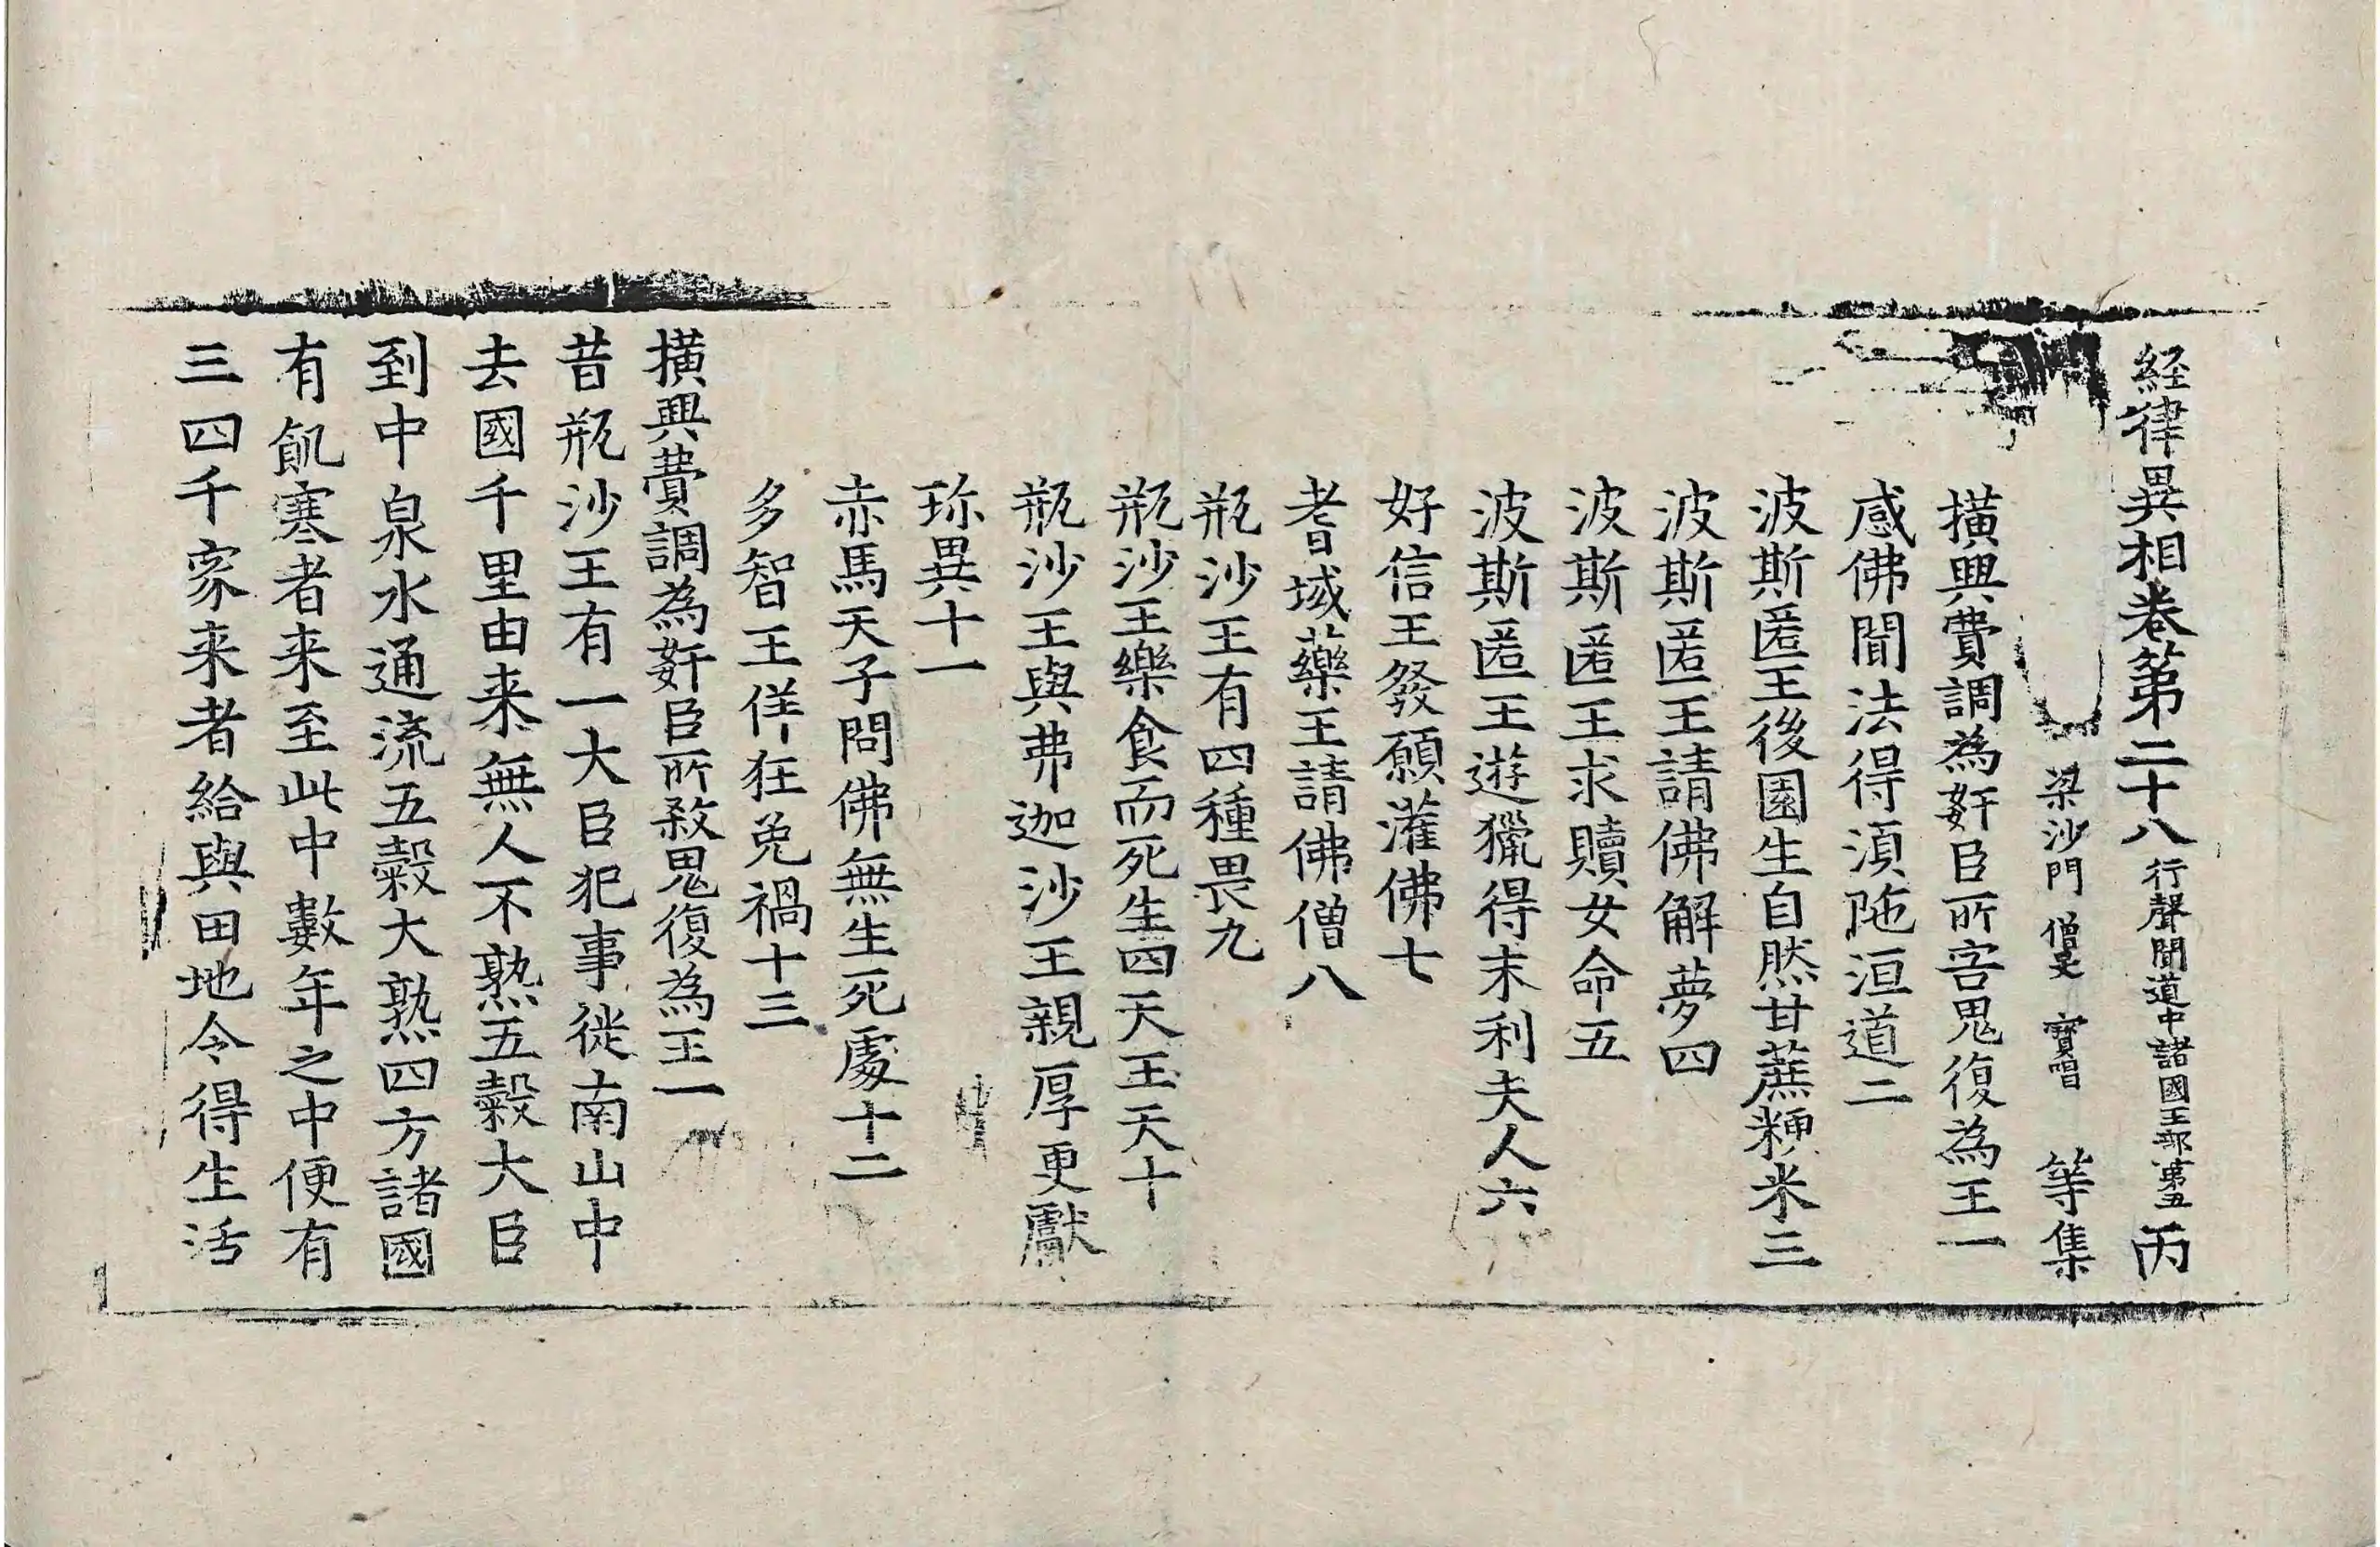 経律異相卷第二十八 行聲聞道中諸國王部第五 丙
梁沙門 僧旻 寶唱 等集
撗興費調為姧臣所害鬼復為王一
感佛聞法得湏陁洹道二
波斯匿王後園生自然甘蔗粳米三
波斯匿王請佛解夢四
波斯匿王求贖女命五
波斯匿王遊獵得末利夫人六
好信王發願灌佛七
耆域藥王請佛僧八
瓶沙王有四種畏九
瓶沙王樂食而死生四天王天十
瓶沙王與弗迦沙王親厚更獻
珎異十一
赤馬天子問佛無生死處十二
多智王佯狂免禍十三
撗興費調為姧臣所敎鬼復為王一
昔瓶沙王有一大臣犯事徙南山中
去國千里由来無人不熟五穀大臣
到中泉水通流五穀大熟四方諸國
有飢寒者来至此中數年之中便有
三四千家来者給與田地令得生活